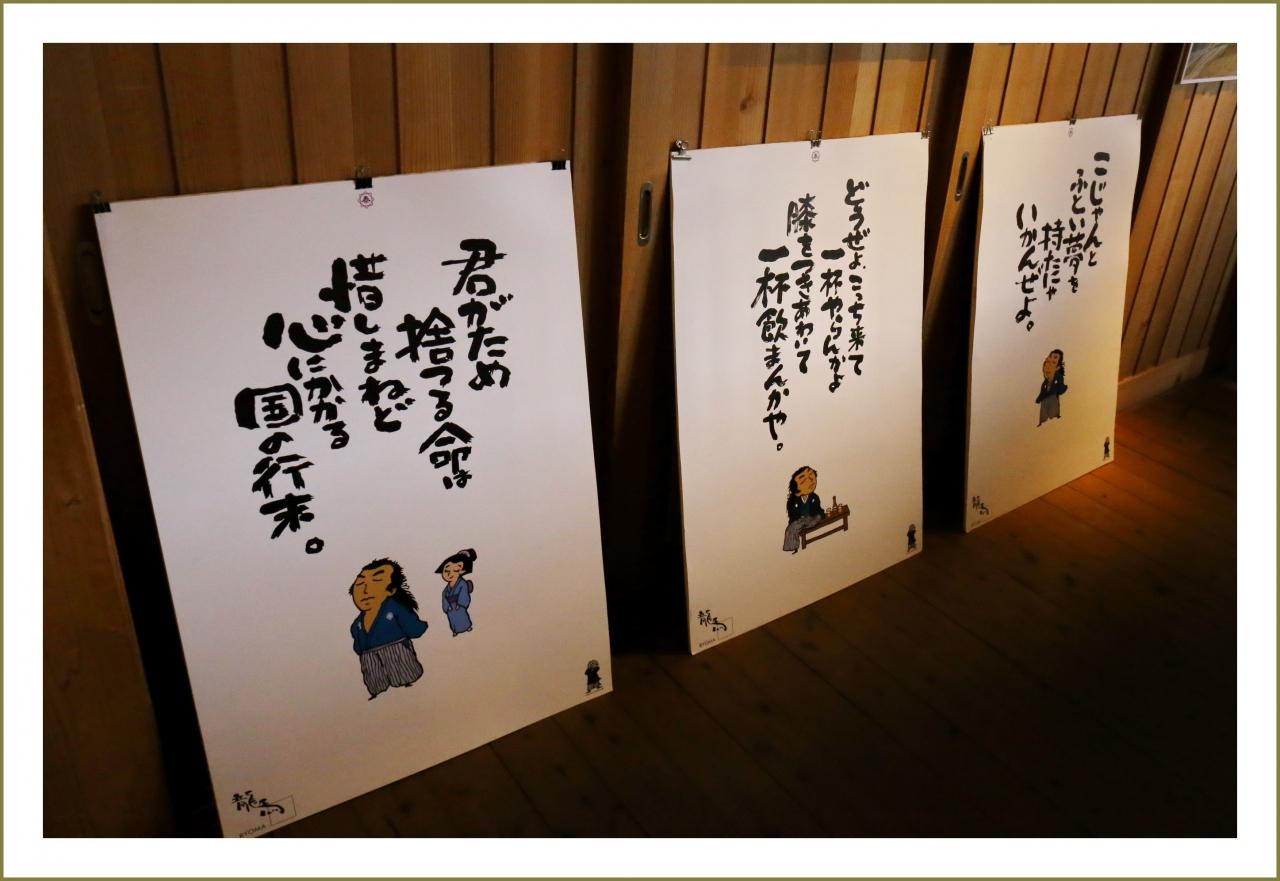 君がため
捨つる命は
惜しまねど
心にかかる
国の行末。
龍馬
RYOMA
どうぜよ、こっち来て
一杯やらんかよ
膝をつきあわいて
一杯飲まんかや。
龍馬
RYOMA
こじゃんと
ふとい夢を
持たにゃ
いかんぜよ。
龍馬